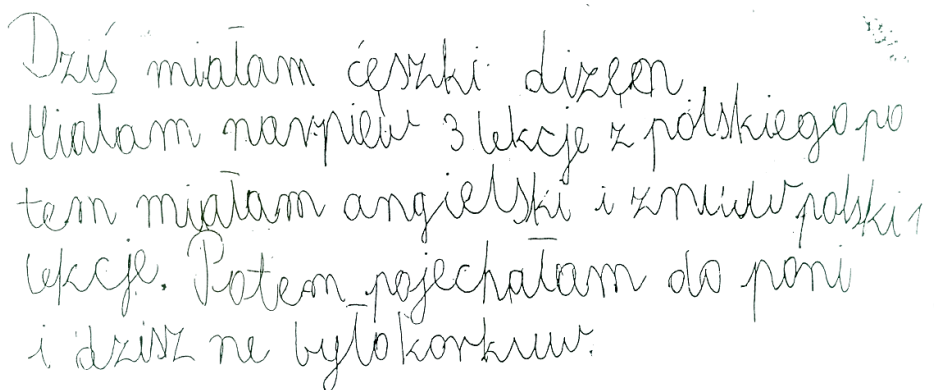 Dziś miałam ćęszki dizęn
Miałam narpiew 3 lekcje z polskiego po
tem miałam angielski i znuuw polski 1
lekcje. Potem pojechałam do pani
i dzisz ne było korkuw.